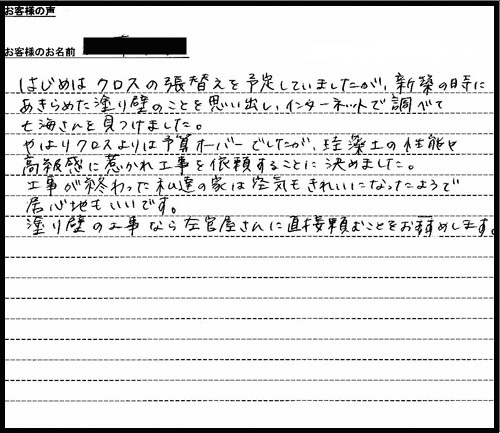 お客様の声
お客様のお名前
はじめは クロスの張替えを予定していましたが、新築の時に
あきらめた塗り壁のことを思い出し、インターネットで調べて
七海さんを見つけました。
やはりクロスよりは予算オーバーでしたが、珪藻土の性能や
高級感に惹かれ工事を依頼することに決めました。
工事が終わった私達の家は空気もきれいになったようで
居心地もいいです。
塗り壁の工事なら左官屋さんに直接頼むことをおすすめします。